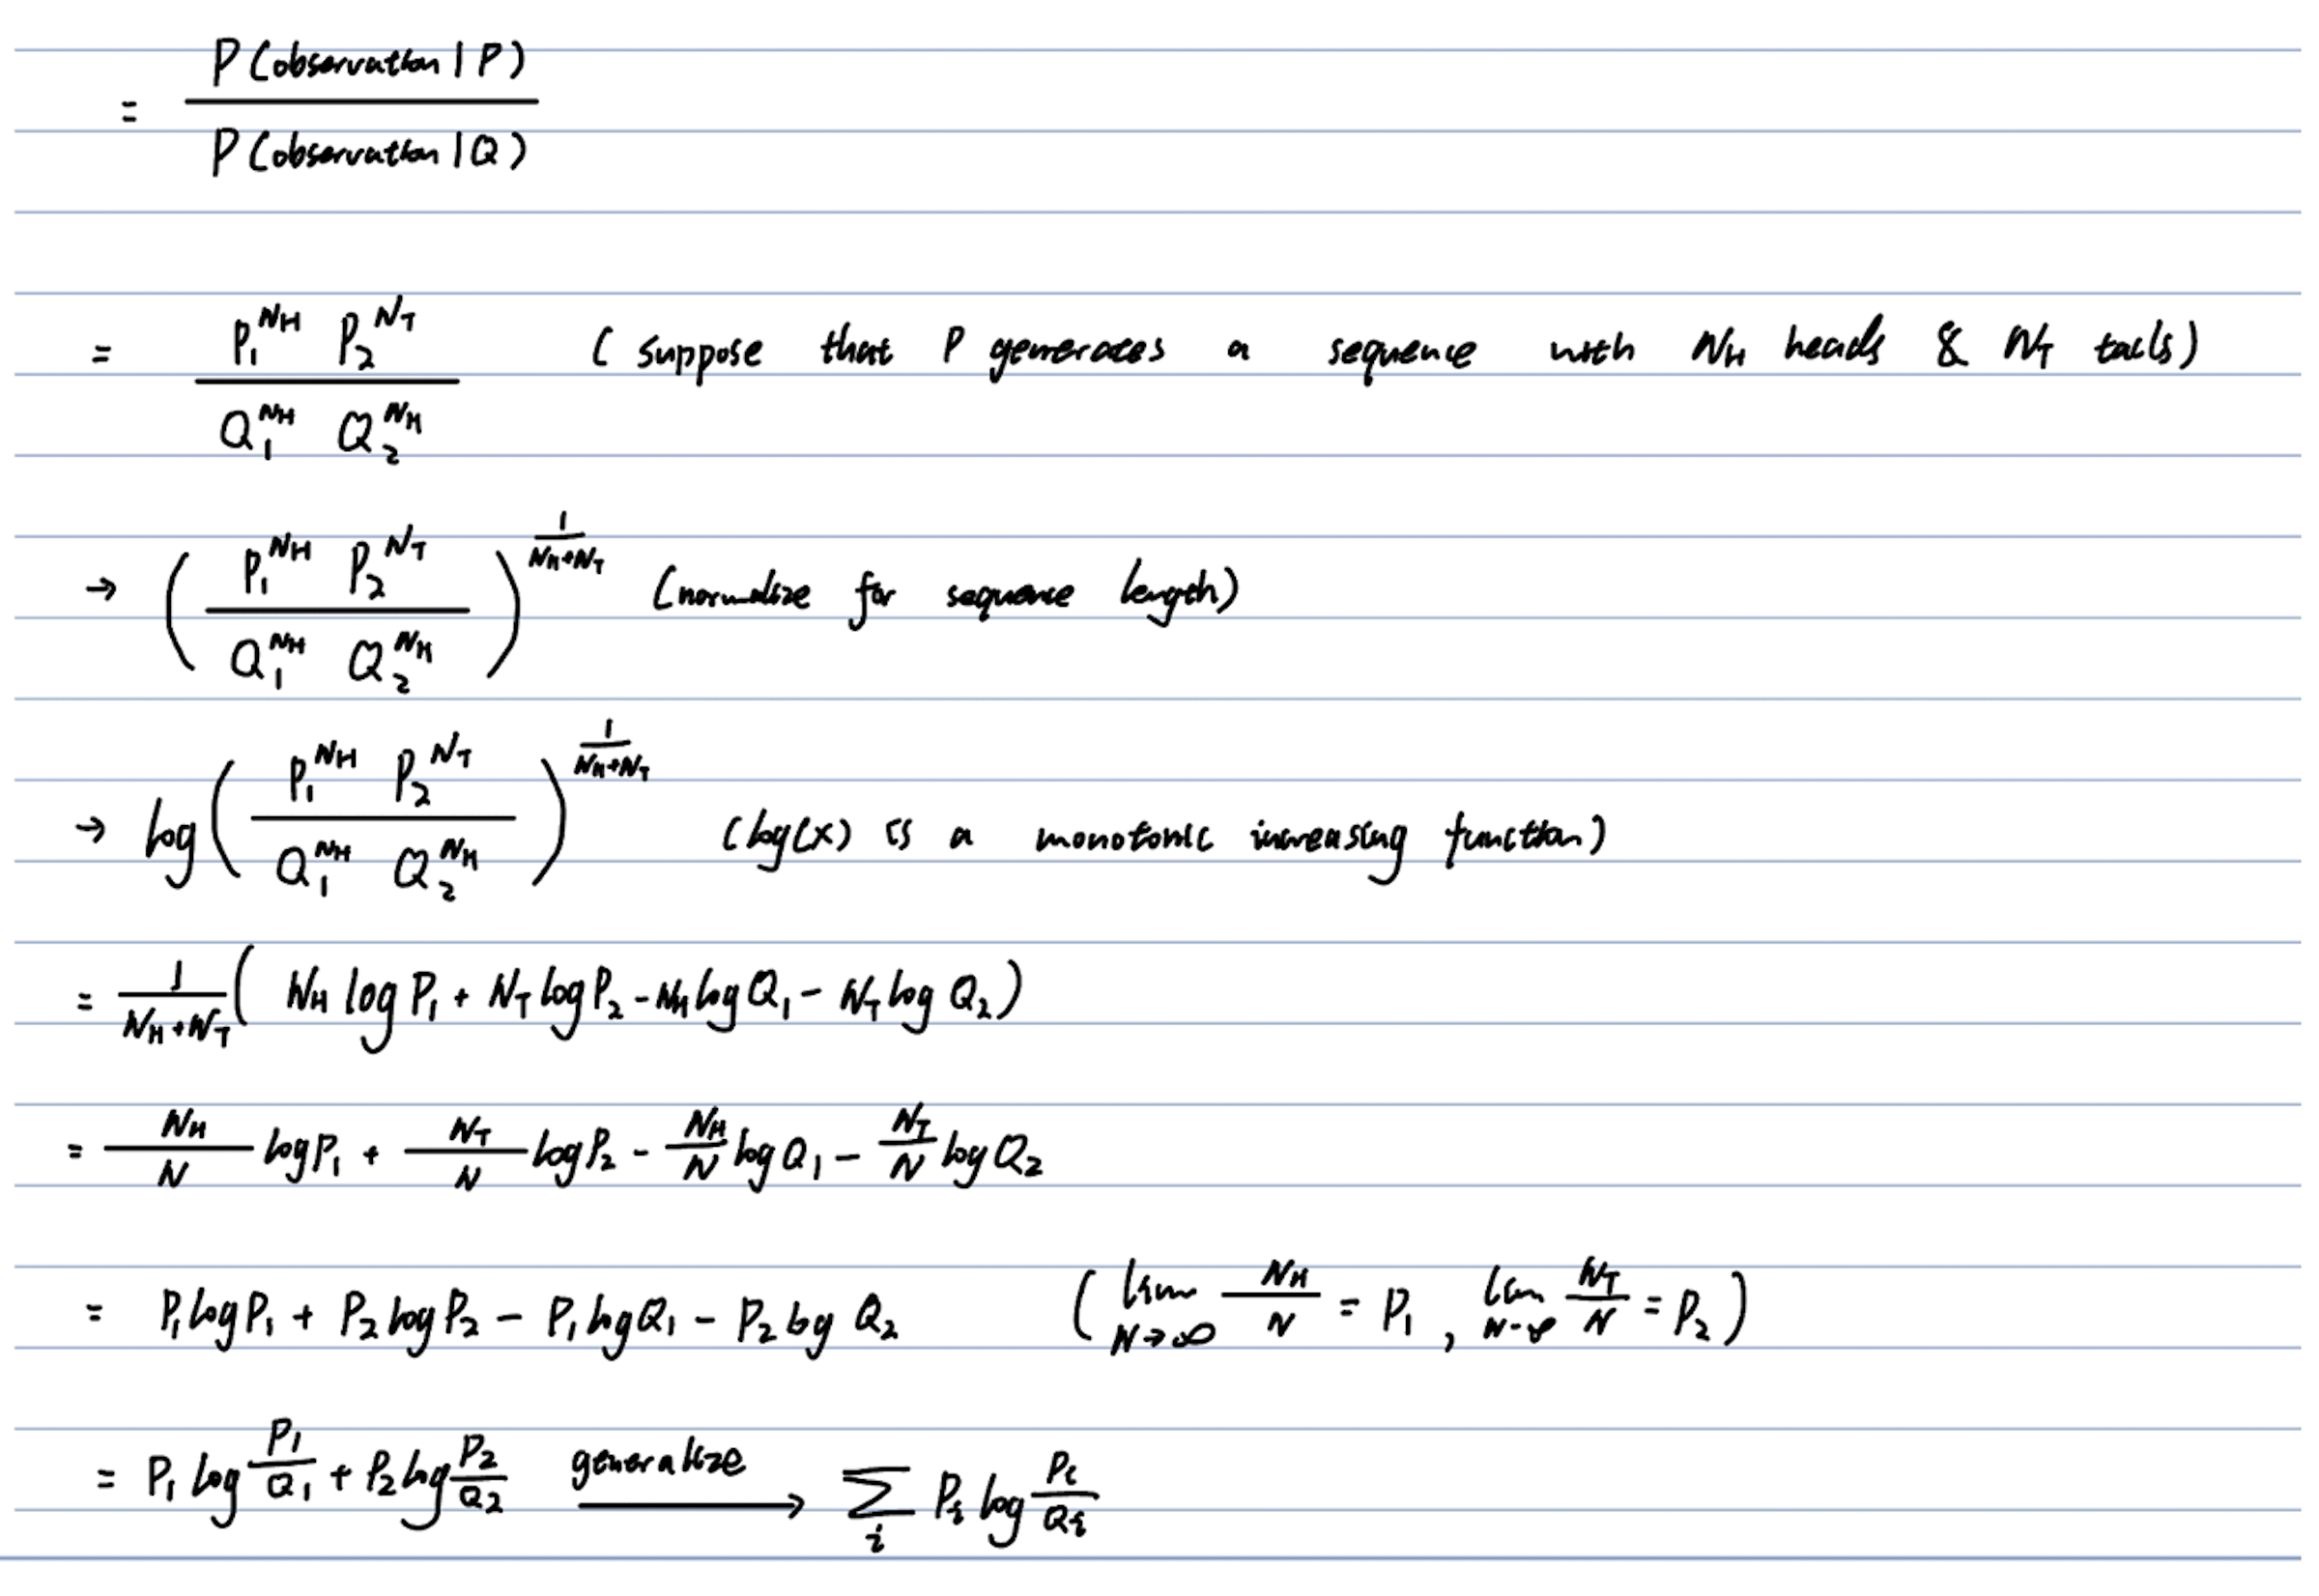 = P(observation | P) / P(observation | Q)
= P₁^{N_H} P₂^{N_T} / Q₁^{N_H} Q₂^{N_H} (suppose that P generates a sequence with N_H heads & N_T tails)
→ ( P₁^{N_H} P₂^{N_T} / Q₁^{N_H} Q₂^{N_H} )^{1/(N_H+N_T)} (normalize for sequence length)
→ log( P₁^{N_H} P₂^{N_T} / Q₁^{N_H} Q₂^{N_H} )^{1/(N_H+N_T)} (log(x) is a monotonic increasing function)
= 1/(N_H+N_T) ( N_H log P₁ + N_T log P₂ - N_H log Q₁ - N_T log Q₂ )
= N_H/N log P₁ + N_T/N log P₂ - N_H/N log Q₁ - N_T/N log Q₂
= P₁ log P₁ + P₂ log P₂ - P₁ log Q₁ - P₂ log Q₂ ( lim_{N→∞} N_H/N = P₁ , lim_{N→∞} N_T/N = P₂ )
= P₁ log P₁/Q₁ + P₂ log P₂/Q₂ generalize → ∑_i P_i log P_i/Q_i